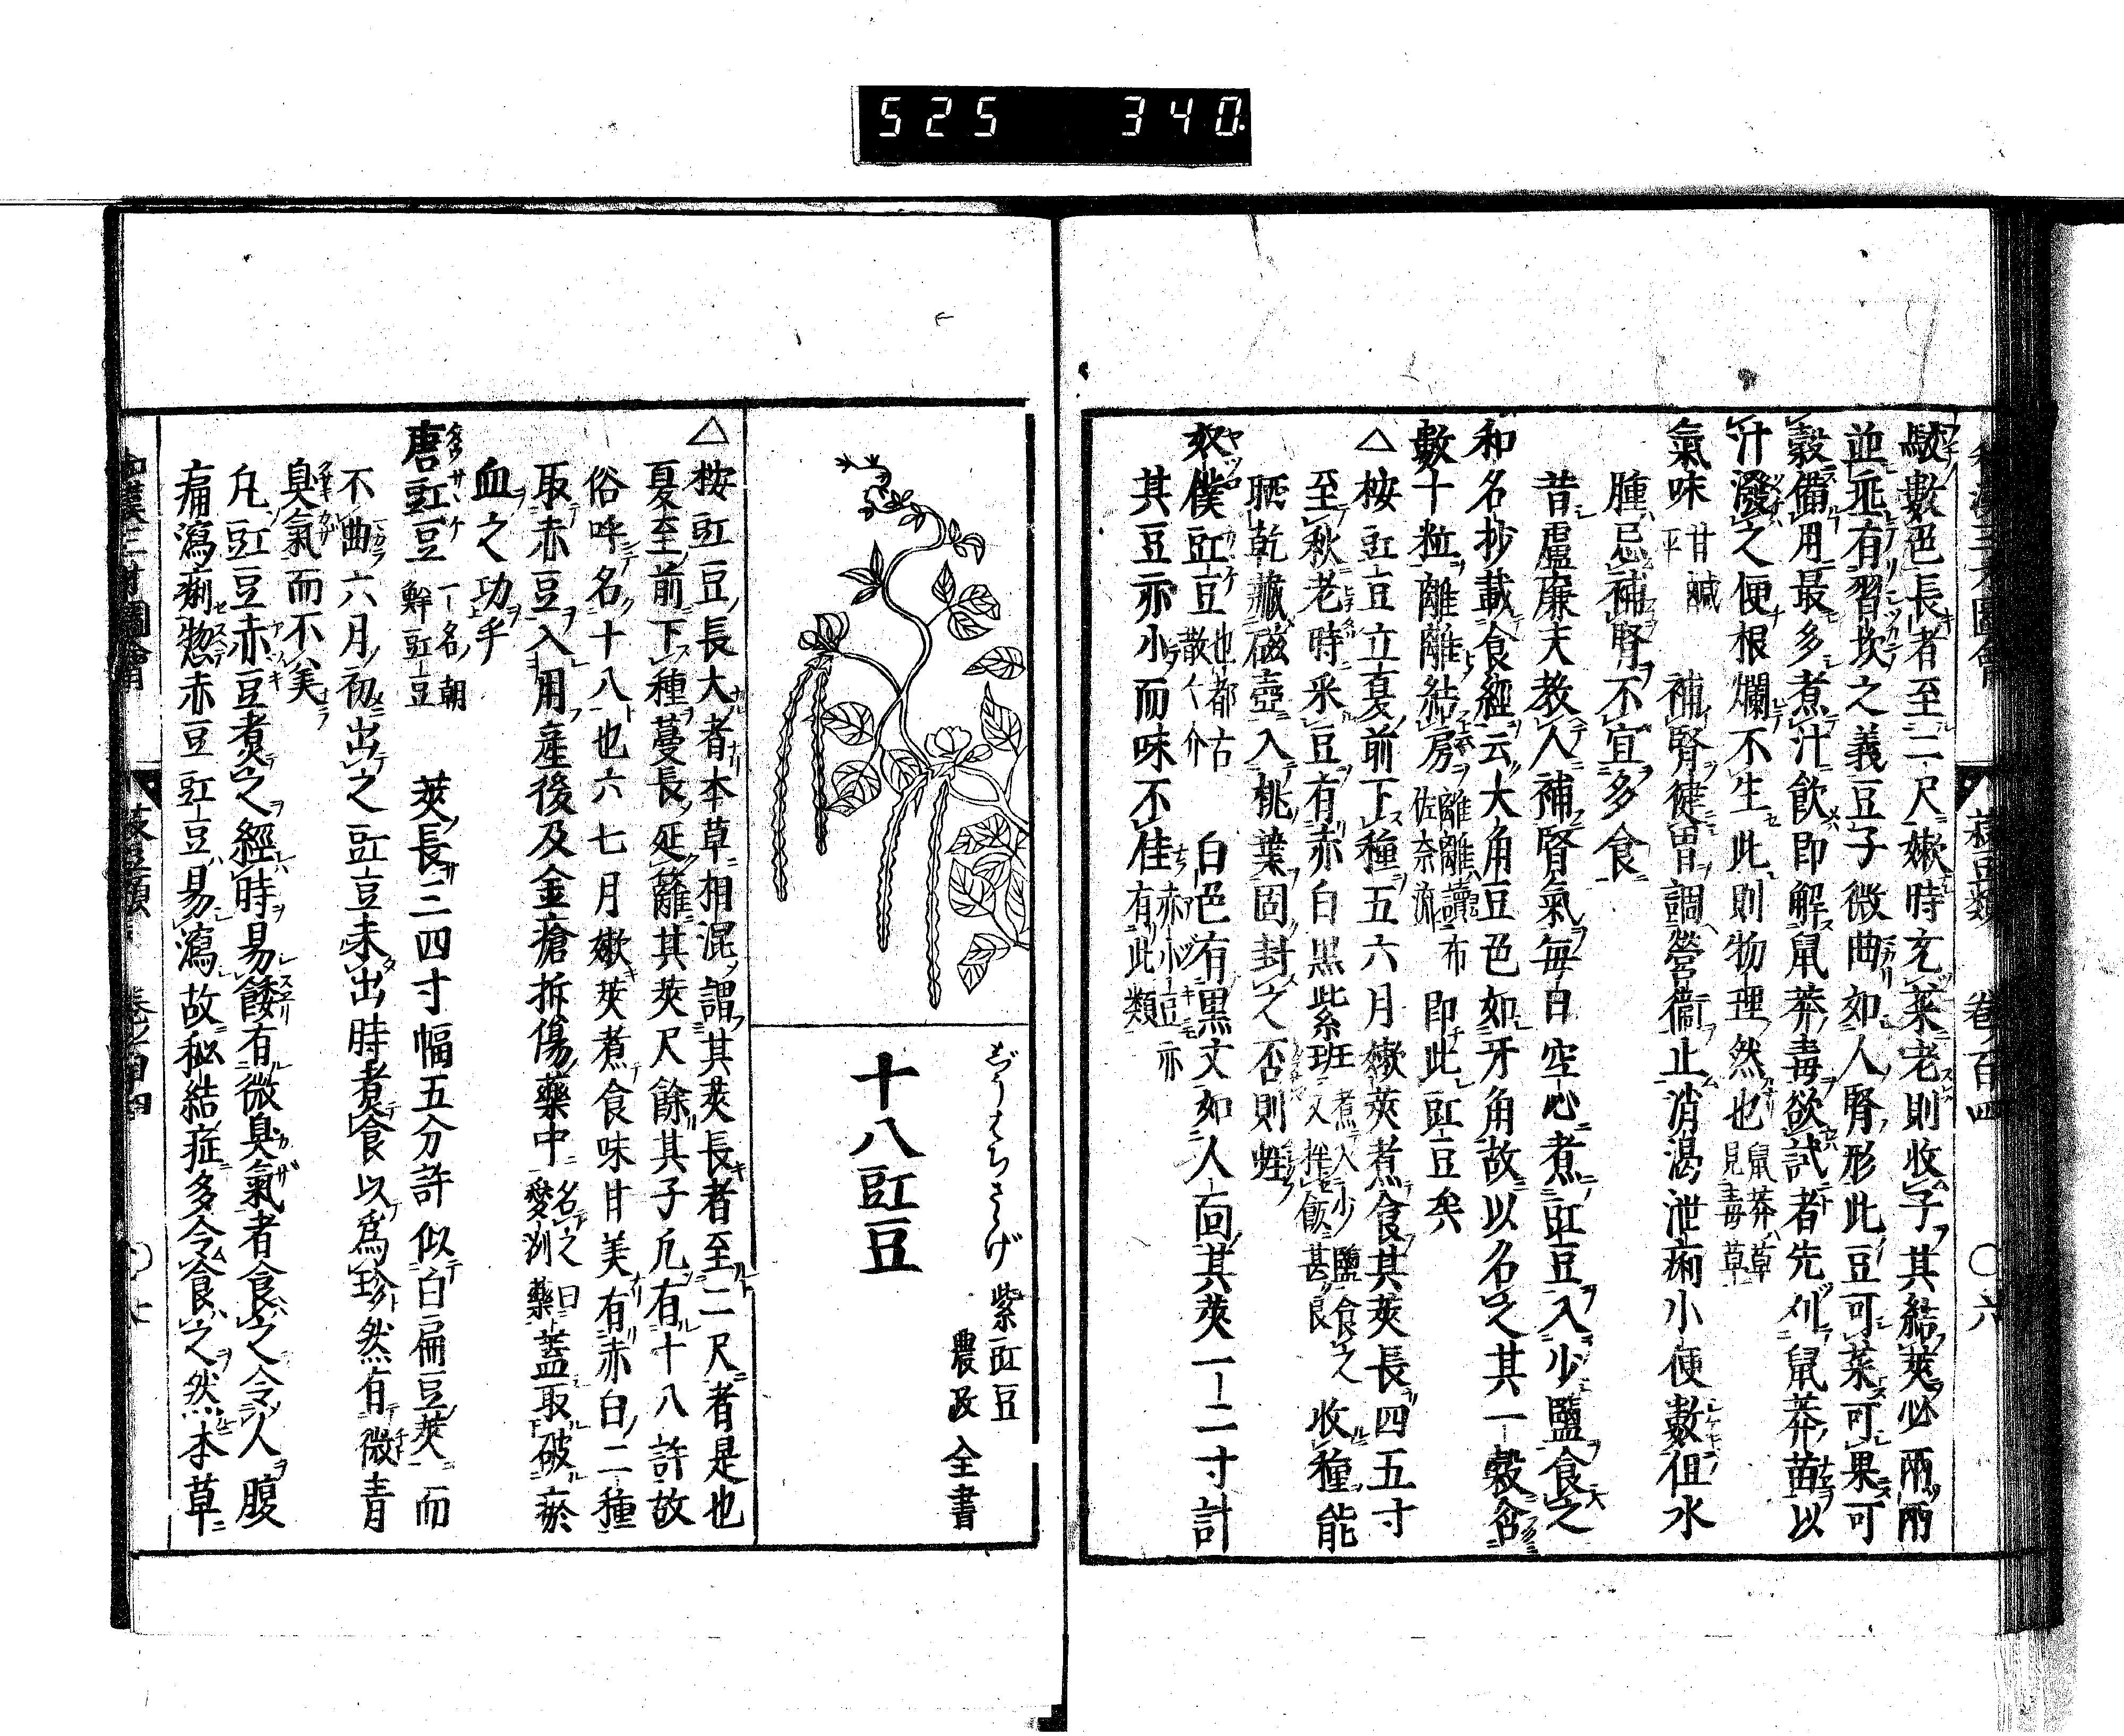 525 340
和漢三才圖會 菽豆類 卷ノ百四 ○六
數色長者至二尺嫩時充菜老則收子其結莢必兩兩
並垂有習坎之義豆子微曲如人腎形此豆可菜可果可
穀備用最多煮汁飲即解鼠莽毒欲試者先刈鼠莽苗以
汁潑之便根爛不生此則物理然也鼠莽ハ草見毒草
氣味甘鹹平 補腎健胃調營衞止消渴泄痢小便數但水
腫忌補腎不宜多食
昔盧廉夫教人補腎氣每日空心煮豇豆入少鹽食之
和名抄載食經云大角豆色如牙角故以名之其一殼含
數十粒離離結房離離讀布佐奈流即此豇豆矣
△按豇豆立夏前下種五六月嫩莢煮食其莢長四五寸
至秋老時采豆有赤白黑紫斑煮入少鹽食之又拌飯甚良收種能
晒乾藏磁壺入桃葉固封之否則蛀
奴僕豇豆也都古散介 白色有黑文如人面其莢一二寸計
其豆亦小而味不佳赤小豆亦有此類
じうはちさゝげ
紫豇豆
農政全書
十八豇豆
△按豇豆長大者本草相混謂其莢長者至二尺者是也
夏至前下種蔓長延籬其莢尺餘其子凡有十八許故
俗呼名十八也六七月嫩莢煮食味甘美有赤白二種
取赤豆入用產後及金瘡拆傷藥中名之曰愛洲藥蓋取破瘀
血之功乎
唐豇豆一名朝鮮豇豆 莢長三四寸幅五分許似白扁豆莢而
不曲六月初出之豇豆未出時煮食以爲珍然有微青
臭氣而不美
凡豇豆赤豆煮之經時易餧有微臭氣者食之令人腹
痛瀉痢惣赤豆豇豆易瀉故秘結症多令食之然本草